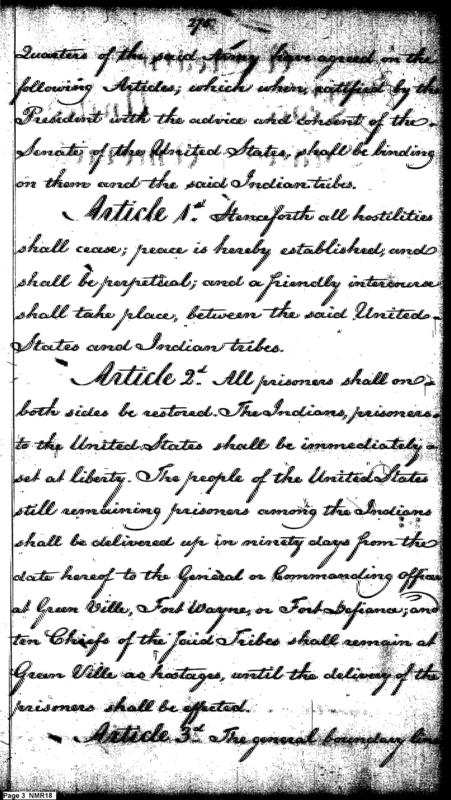 275.
Quarters of the said Army have agreed on the
following Articles; which when ratified by the
President with the advice and consent of the
Senate of the United States, shall be binding
on them and the said Indian tribes.
Article 1.st Henceforth all hostilities
shall cease; peace is hereby established, and
shall be perpetual; and a friendly intercourse
shall take place, between the said United
States and Indian tribes.
Article 2.d All prisoners shall on
both sides be restored. The Indians, prisoners
to the United States shall be immediately
set at liberty. The people of the United States
still remaining prisoners among the Indians
shall be delivered up in ninety days from the
date hereof to the General or Commanding Officer
at Green Ville, Fort Wayne, or Fort Defiance; and
ten Chiefs of the said Tribes shall remain at
Green Ville as hostages, until the delivery of the
prisoners shall be effected.
Article 3.d The general boundary line
Page 3 NMR18